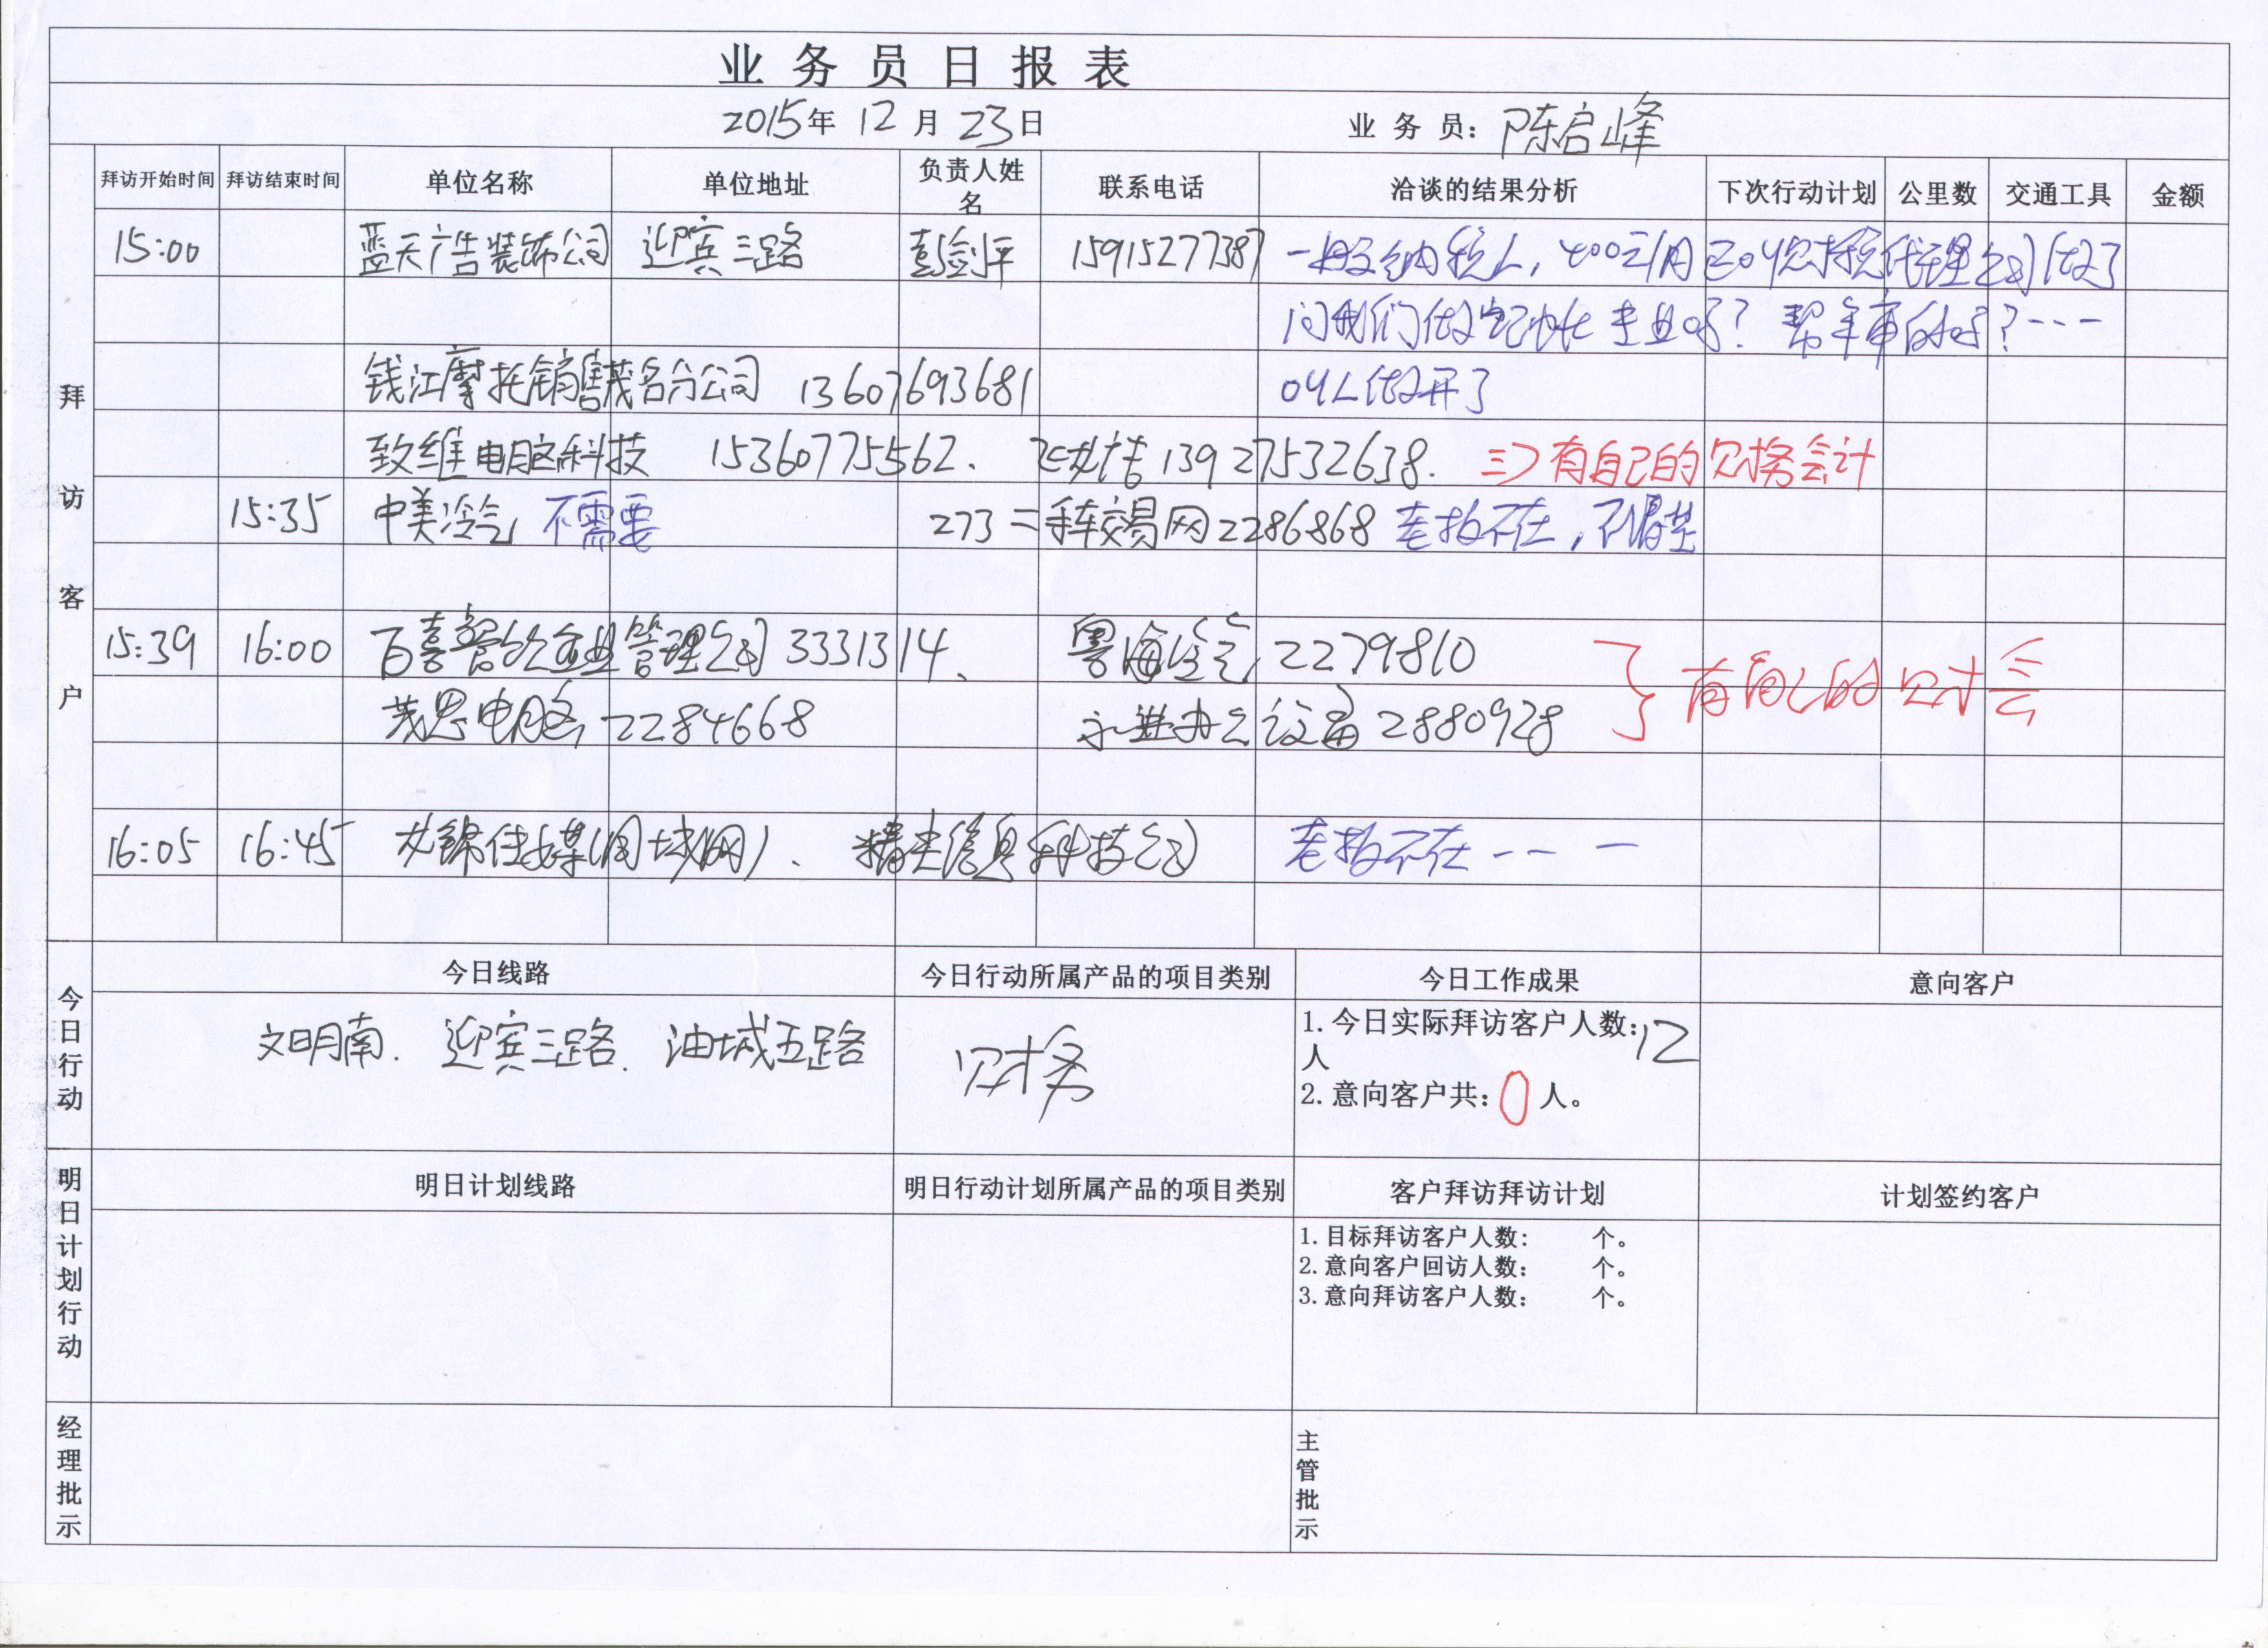 业务员日报表
2015年 12月 23日 业 务 员: 陈启峰
拜访客户
拜访开始时间 拜访结束时间 单位名称 单位地址 负责人姓名 联系电话 洽谈的结果分析 下次行动计划 公里数 交通工具 金额
15:00 蓝天广告装饰公司 迎宾三路 彭剑平 15915277387 一般纳税人, 400元/月 代理公司做了
问我们做记帐专业吗? 帮年审的吗? ---
钱江摩托销售茂名分公司 13607693681
致维电脑科技 15360775562、 13927532638. 有自己的财务会计
15:35 中美冷气 不需要 273二手车交易网2286868 老板不在,不清楚
15:39 16:00 百喜 企业管理公司 3331314、 粤海空气 2279810
茂思电脑 2284668 永进办公设备 2880928 有自己的财会
16:05 16:45 锦传媒(同城网)、 信息科技公司 老板不在 ---
今日行动
今日线路 今日行动所属产品的项目类别 今日工作成果 意向客户
文明南. 迎宾三路. 油城五路 财务
1.今日实际拜访客户人数:12
人
2.意向客户共:0人。
明日计划行动
明日计划线路 明日行动计划所属产品的项目类别 客户拜访拜访计划 计划签约客户
1.目标拜访客户人数: 个。
2.意向客户回访人数: 个。
3.意向拜访客户人数: 个。
经理批示 主管批示